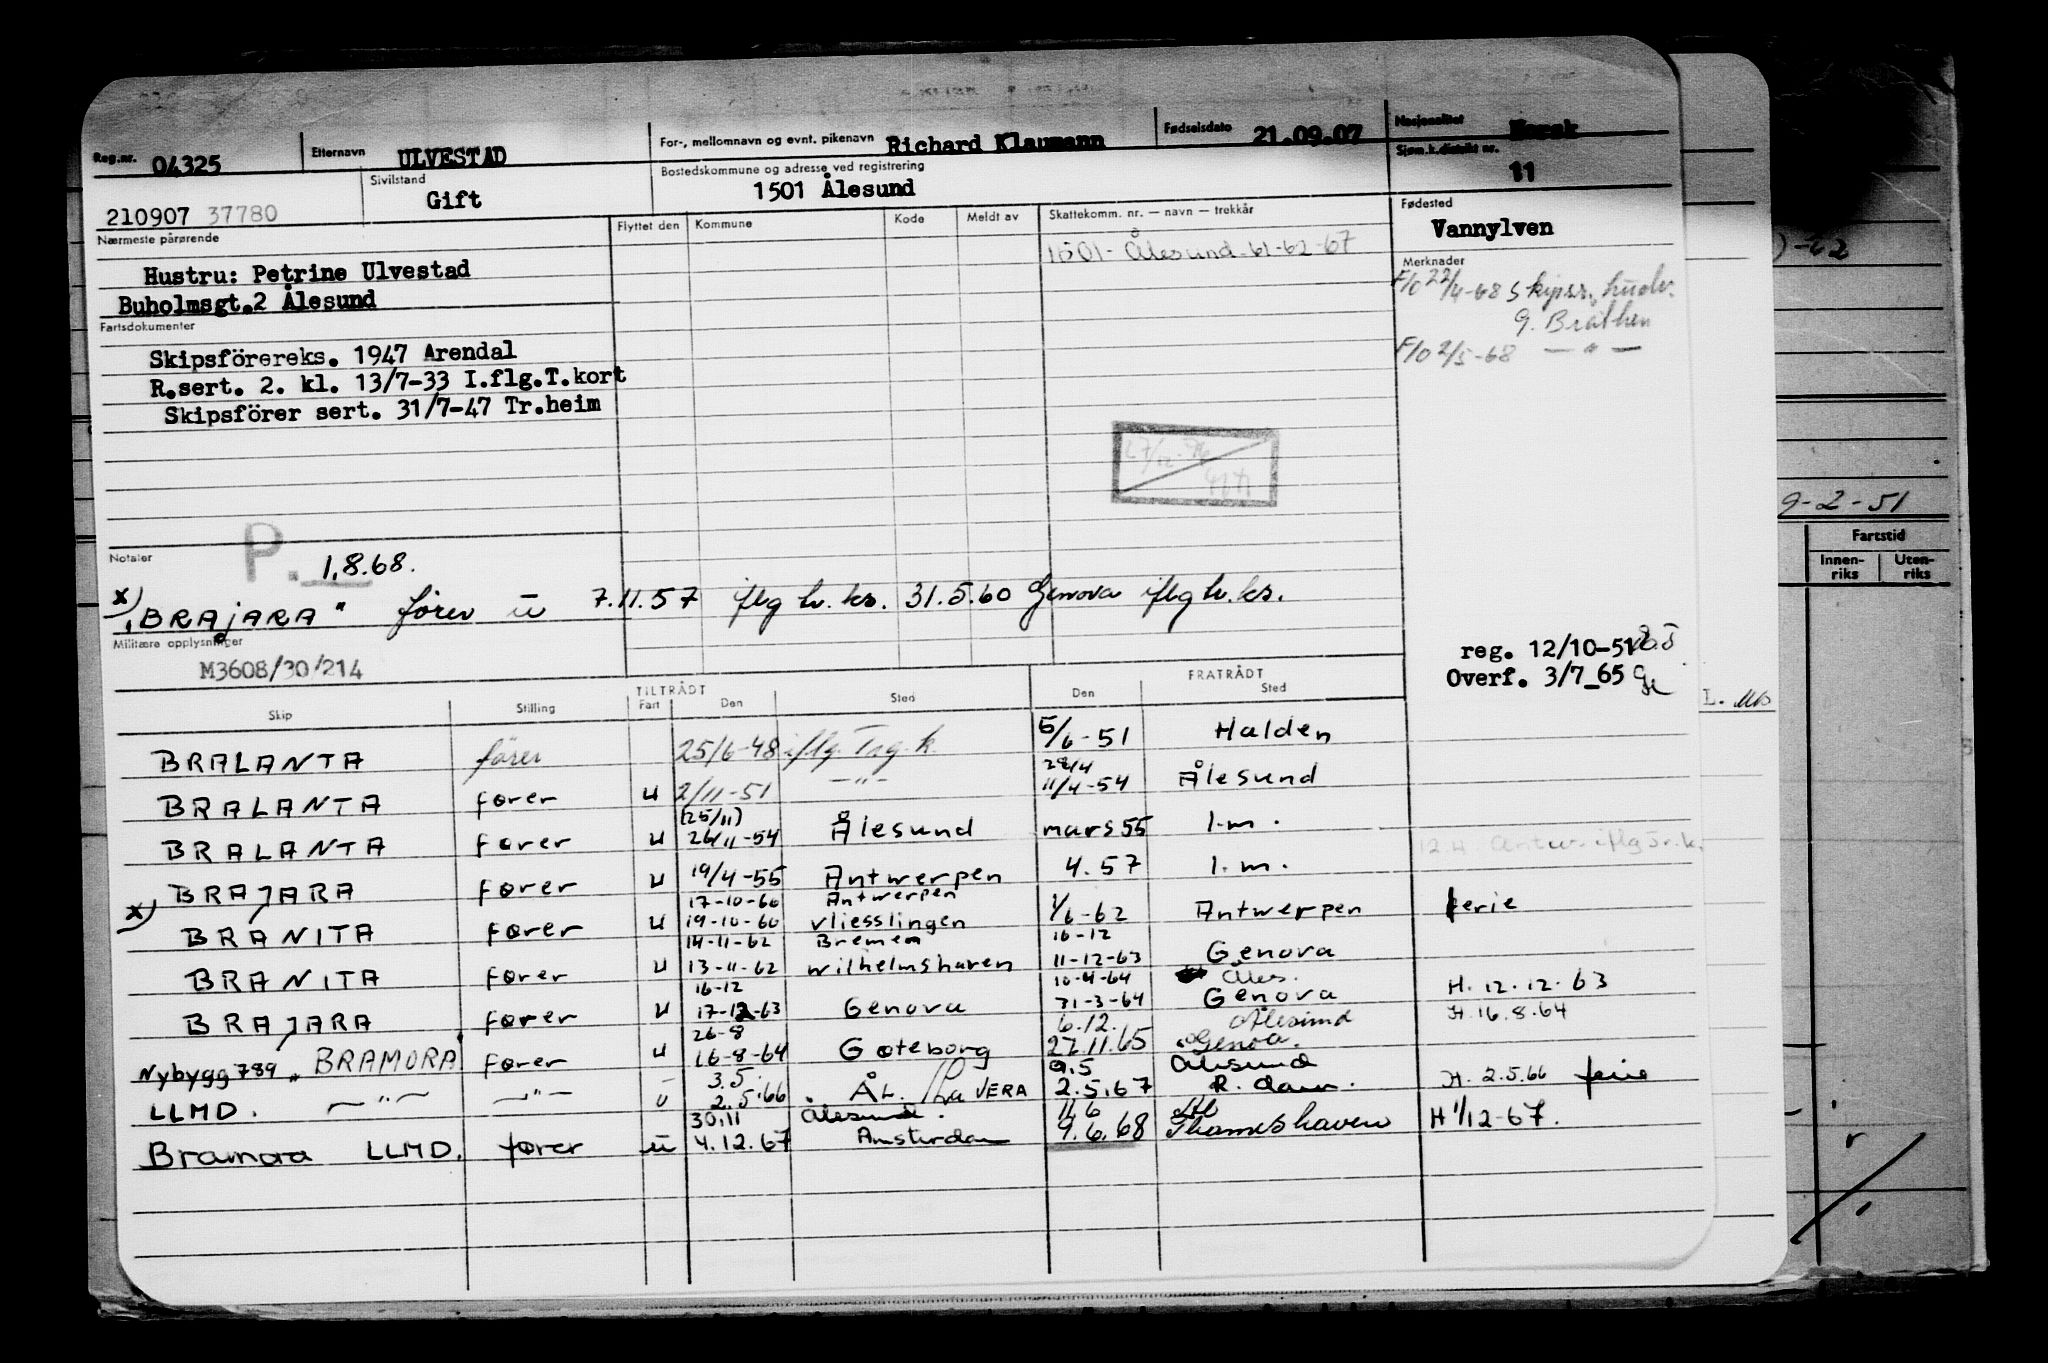 Reg.nr. 04325 Etternavn ULVESTAD For-, mellomnavn og evnt. pikenavn Richard Klaumann Fødselsdato 21.09.07 Nasjonalitet Norsk
210907 37780 Sivilstand Gift Bostedskommune og adresse ved registrering 1501 Ålesund Sjøm.k.distrikt nr. 11
Nærmeste pårørende Flyttet den Kommune Kode Meldt av Skattekomm. nr. — navn — trekkår Fødested
Vannylven
1501- Ålesund-61-62-67
Hustru: Petrine Ulvestad
Buholmsgt.2 Ålesund
Merknader
F/O 22/4-68 Skipsr.
F/O 2/5-68 — " —
Fartsdokumenter
Skipsförereks. 1947 Arendal
R.sert. 2. kl. 13/7-33 I.flg.T.kort
Skipsförer sert. 31/7-47 Tr.heim
Notater P. 1.8.68.
x) "BRAJARA" förer u 7.11.57 iflg hv.ks. 31.5.60 Genova iflg hv.ks.
Militære opplysninger
M3608/30/214
reg. 12/10-51
Overf. 3/7_65
TILTRÅDT FRATRÅDT
Skip Stilling Fart Den Sted Den Sted
BRALANTA förer 25/6-48 iflg. Trg.k. 5/6-51 Halden
BRALANTA fører u 2/11-51 —"— 28/4 11/4-54 Ålesund
BRALANTA fører u (25/11) 26/11-54 Ålesund mars 55 I.m.
BRAJARA fører u 19/4-55 Antwerpen 4.57 I.m. 12.4 Antw. iflg Tr.k.
x) BRANITA fører u 17-10-60 Antwerpen 19-10-60 vliesslingen 1/6-62 Antwerpen ferie
BRANITA fører u 14-11-62 Bremen 13-11-62 wilhelmshaven 16-12 11-12-63 Genova
BRAJARA fører u 16-12 17-12-63 Genova 10-4-64 Åles. 31-3-64 Genova H. 12.12.63
Nybygg 789 "BRAMORA fører u 26-8 16-8-64 Gøteborg 6.12. Ålesund 27.11.65 Genoa. H.16.8.64
LLMD. —"— —"— u 3.5. 2.5.66 ÅL. / La VERA 9.5 Ålesund 2.5.67 R.dam. H. 2.5.66 ferie
Bramora LLMD. fører u 30.11 Ålesund. 4.12.67 Amsterdam 11.6 9.6.68 Thameshaven H 1/12-67.
)-62
9-2-51
Fartstid
Innen-riks Uten-riks
L.